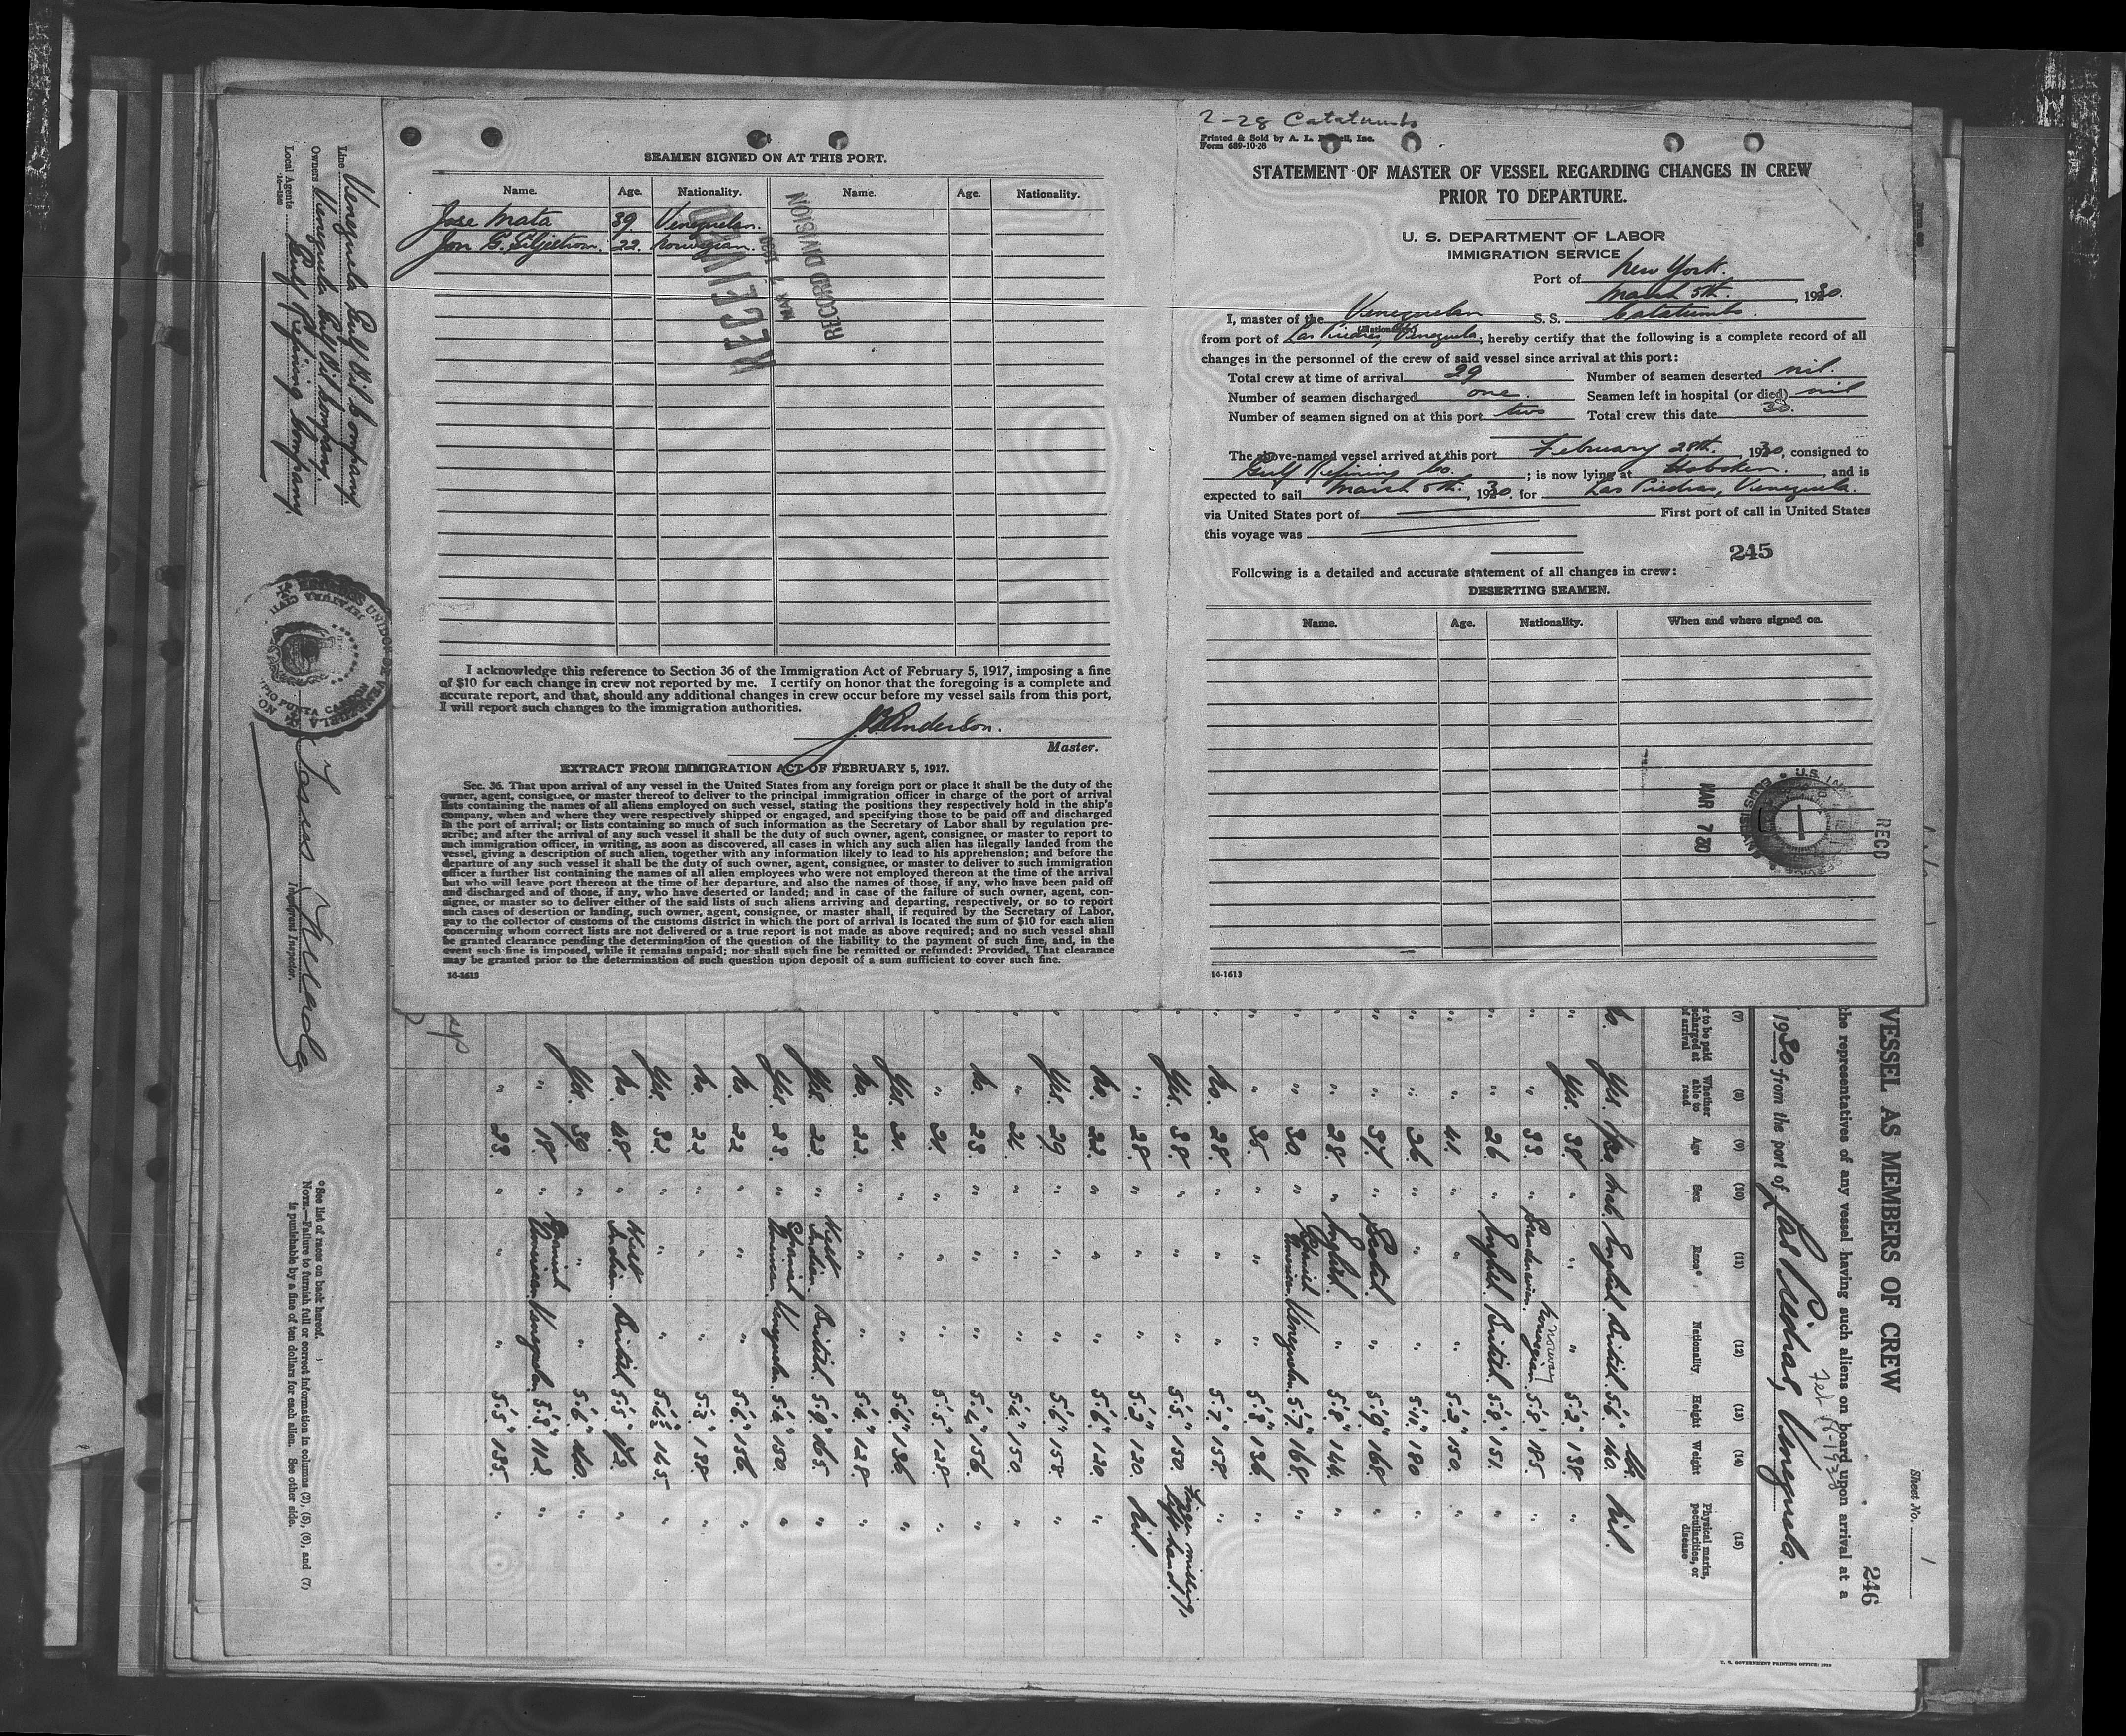 2-28 Catatumbo
Printed & Sold by A. L.
Form 689-10-28
STATEMENT OF MASTER OF VESSEL REGARDING CHANGES IN CREW
PRIOR TO DEPARTURE.
U. S. DEPARTMENT OF LABOR
IMMIGRATION SERVICE
Port of New York.
March 5th. , 1930.
I, master of the Venezuelan S. S. Catatumbo.
(Nationality)
from port of Las Piedras, Venezuela; hereby certify that the following is a complete record of all
changes in the personnel of the crew of said vessel since arrival at this port:
Total crew at time of arrival 29 Number of seamen deserted nil.
Number of seamen discharged one. Seamen left in hospital (or died) nil
Number of seamen signed on at this port two Total crew this date 30.
The above-named vessel arrived at this port February 28th. , 1930, consigned to
Gulf Refining Co. ; is now lying at Hoboken. , and is
expected to sail March 5th. , 1930. for Las Piedras, Venezuela.
via United States port of First port of call in United States
this voyage was
245
Following is a detailed and accurate statement of all changes in crew:
DESERTING SEAMEN.
Name. Age. Nationality. When and where signed on.
MAR 7 30
RECD
14-1613
SEAMEN SIGNED ON AT THIS PORT.
Name. Age. Nationality. Name. Age. Nationality.
Jose Mata 39 Venezuelan.
Jon G. 22. Norwegian.
RECEIVED
MAR 7 1930
RECORD DIVISION
I acknowledge this reference to Section 36 of the Immigration Act of February 5, 1917, imposing a fine
of $10 for each change in crew not reported by me. I certify on honor that the foregoing is a complete and
accurate report, and that, should any additional changes in crew occur before my vessel sails from this port,
I will report such changes to the immigration authorities.
Anderson.
Master.
EXTRACT FROM IMMIGRATION ACT OF FEBRUARY 5, 1917.
Sec. 36. That upon arrival of any vessel in the United States from any foreign port or place it shall be the duty of the
owner, agent, consignee, or master thereof to deliver to the principal immigration officer in charge of the port of arrival
lists containing the names of all aliens employed on such vessel, stating the positions they respectively hold in the ship's
company, when and where they were respectively shipped or engaged, and specifying those to be paid off and discharged
in the port of arrival; or lists containing so much of such information as the Secretary of Labor shall by regulation pre-
scribe; and after the arrival of any such vessel it shall be the duty of such owner, agent, consignee, or master to report to
such immigration officer, in writing, as soon as discovered, all cases in which any such alien has illegally landed from the
vessel, giving a description of such alien, together with any information likely to lead to his apprehension; and before the
departure of any such vessel it shall be the duty of such owner, agent, consignee, or master to deliver to such immigration
officer a further list containing the names of all alien employees who were not employed thereon at the time of the arrival
but who will leave port thereon at the time of her departure, and also the names of those, if any, who have been paid off
and discharged and of those, if any, who have deserted or landed; and in case of the failure of such owner, agent, con-
signee, or master so to deliver either of the said lists of such aliens arriving and departing, respectively, or so to report
such cases of desertion or landing, such owner, agent, consignee, or master shall, if required by the Secretary of Labor,
pay to the collector of customs of the customs district in which the port of arrival is located the sum of $10 for each alien
concerning whom correct lists are not delivered or a true report is not made as above required; and no such vessel shall
be granted clearance pending the determination of the question of the liability to the payment of such fine, and, in the
event such fine is imposed, while it remains unpaid; nor shall such fine be remitted or refunded: Provided, That clearance
may be granted prior to the determination of such question upon deposit of a sum sufficient to cover such fine.
14-1613
Sheet No. 1
246
VESSEL AS MEMBERS OF CREW
the representatives of any vessel having such aliens on board upon arrival at a
1930, from the port of Las Piedras, Venezuela.
(7) (8) (9) (10) (11) (12) (13) (14) (15)
Whether able to read Age Sex Race* Nationality Height Weight Physical marks, peculiarities, or disease
No. Yes. English. British. 5.6. 140. Nil.
Yes. 38. " " " 5.2" 138. "
" 33. " Scandenavian. Norwegian. 5.8" 185. "
" 26 " English. British. 5.8" 151. "
" 41. " " " 5.2" 150. "
" 26 " " " 5.11" 180 "
" 37. " Scotish. " 5.9" 168. "
" 28. " English. " 5.8" 144. "
" 30. " Spanish American. Venezuelan. 5.7" 168. "
" 35. " " " 5.8" 136 "
No. 28. " " " 5.7" 158. "
Yes. 38. " " " 5.5" 150. Finger missing, left hand.
" 28. " " " 5.3" 120. Nil.
No. 22. " " " 5.6" 120. "
Yes. 29 " " " 5.6" 158. "
" 21. " " " 5.4" 150. "
No. 23. " " " 5.4" 156. "
" 21. " " " 5.5" 128. "
Yes. 21. " " " 5.6" 136. "
No. 22. " " " 5.4" 128. "
Yes. 22. " West Indian. British. 5.9" 165. "
Yes. 23. " Spanish American. Venezuelan. 5.4" 150. "
No. 22 " " " 5.6" 156. "
No. 22. " " " 5.3" 138. "
Yes. 32. " " " 5.6½" 145. "
No. 48. " West Indian. British. 5.5" 172. "
Yes. 39. " " " 5.6" 160. "
" 18. " Spanish American. Venezuelan. 5.3" 112. "
" 23. " " " 5.5" 135. "
Line Venezuela Gulf Oil Company.
Owners Venezuela Gulf Oil Company.
Local Agents Gulf Refining Company.
PUNTA CARDON
Immigrant Inspector.
*See list of races on back hereof.
NOTE.—Failure to furnish full or correct information in columns (2), (5), (6), and (7)
is punishable by a fine of ten dollars for each alien. See other side.
U. S. GOVERNMENT PRINTING OFFICE: